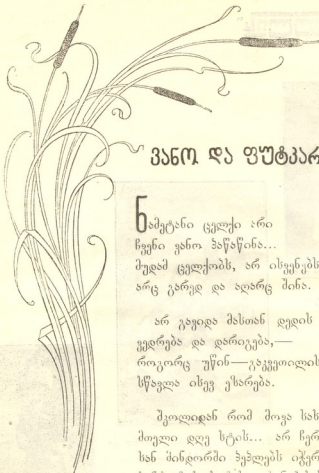 ვანო და ფუტკარ
ნამეტანი ცელქი არი
ჩვენი ვანო პაწაწინა...
მუდამ ცელქობს, არ ისვენებს
არც გარედ და აღარც შინა.
არ გავიდა მასთან დედის
ვედრება და დარიგება,—
როგორც უწინ—გაკვეთილის
სწავლა ისევ ეზარება.
შკოლიდან რომ მოვა სას
მთელი დღე სტის... არ ჩერ
სან მინდორში პეპლებს იჭერ